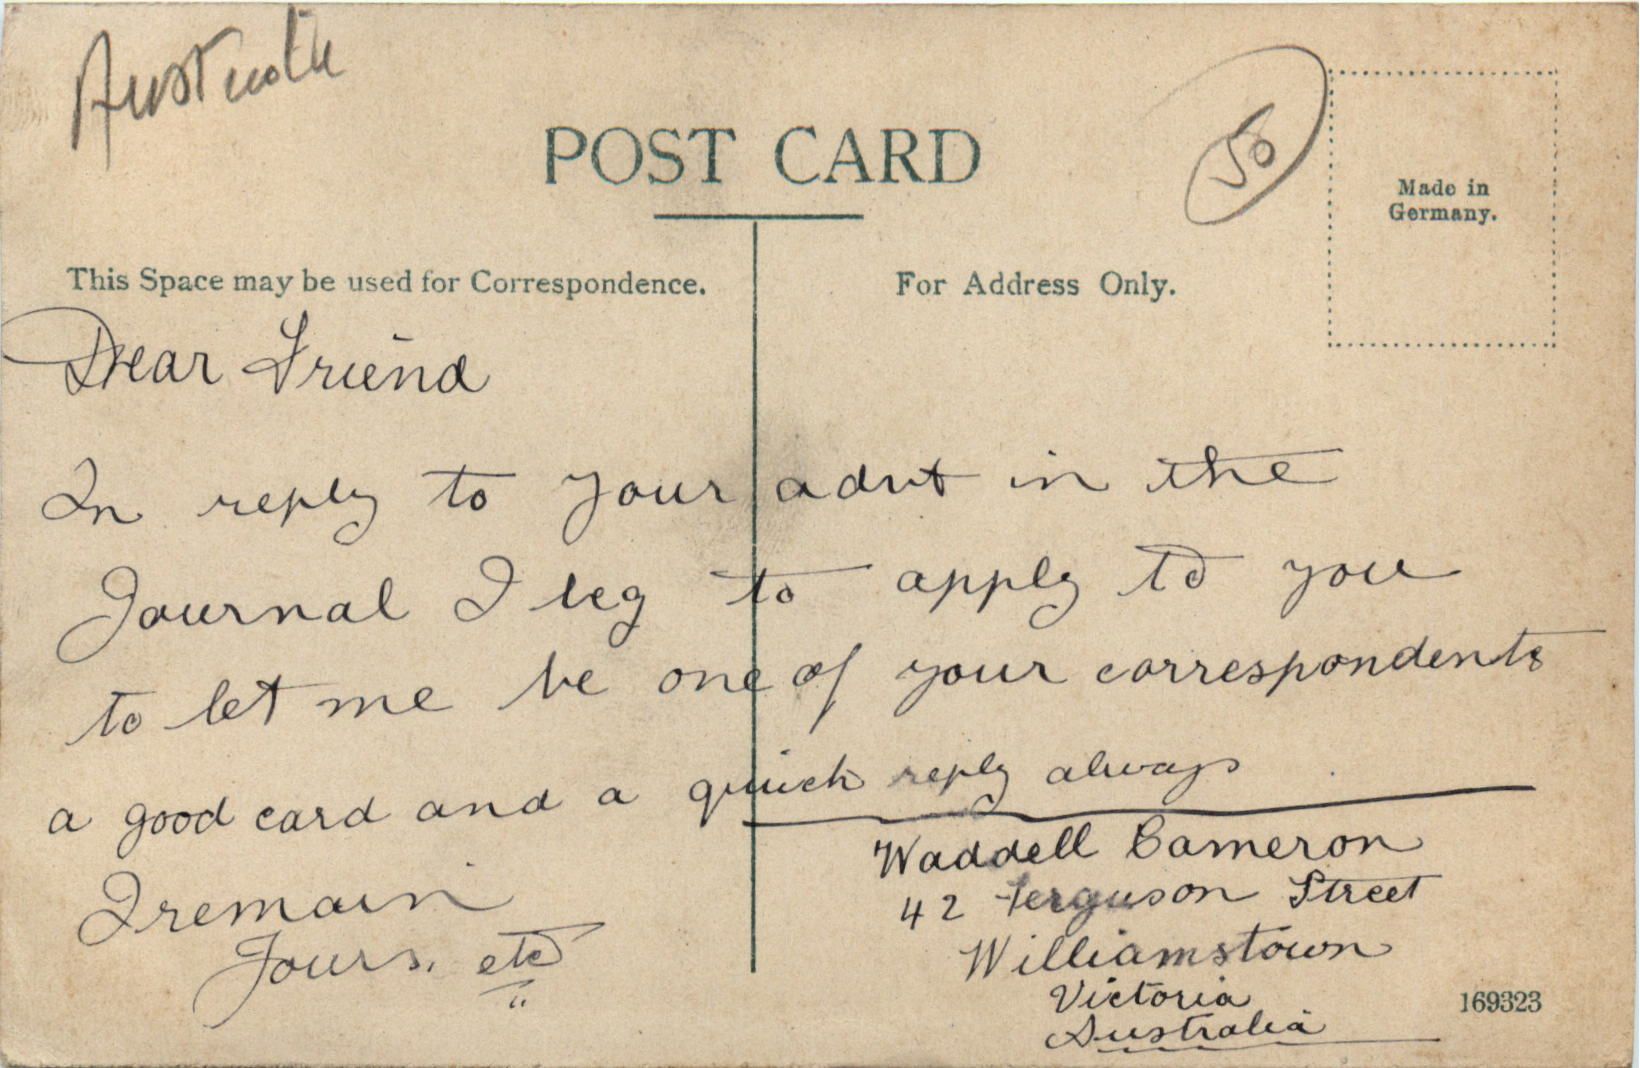 POST CARD
50
Made in
Germany.
This Space may be used for Correspondence.
For Address Only.
Dear Friend
In reply to your advt in the
Journal I beg to apply to you
to let me be one of your correspondents
a good card and a quick reply always
I remain
Yours, etc
Waddell Cameron
42 Ferguson Street
Williamstown
Victoria
Australia
169323